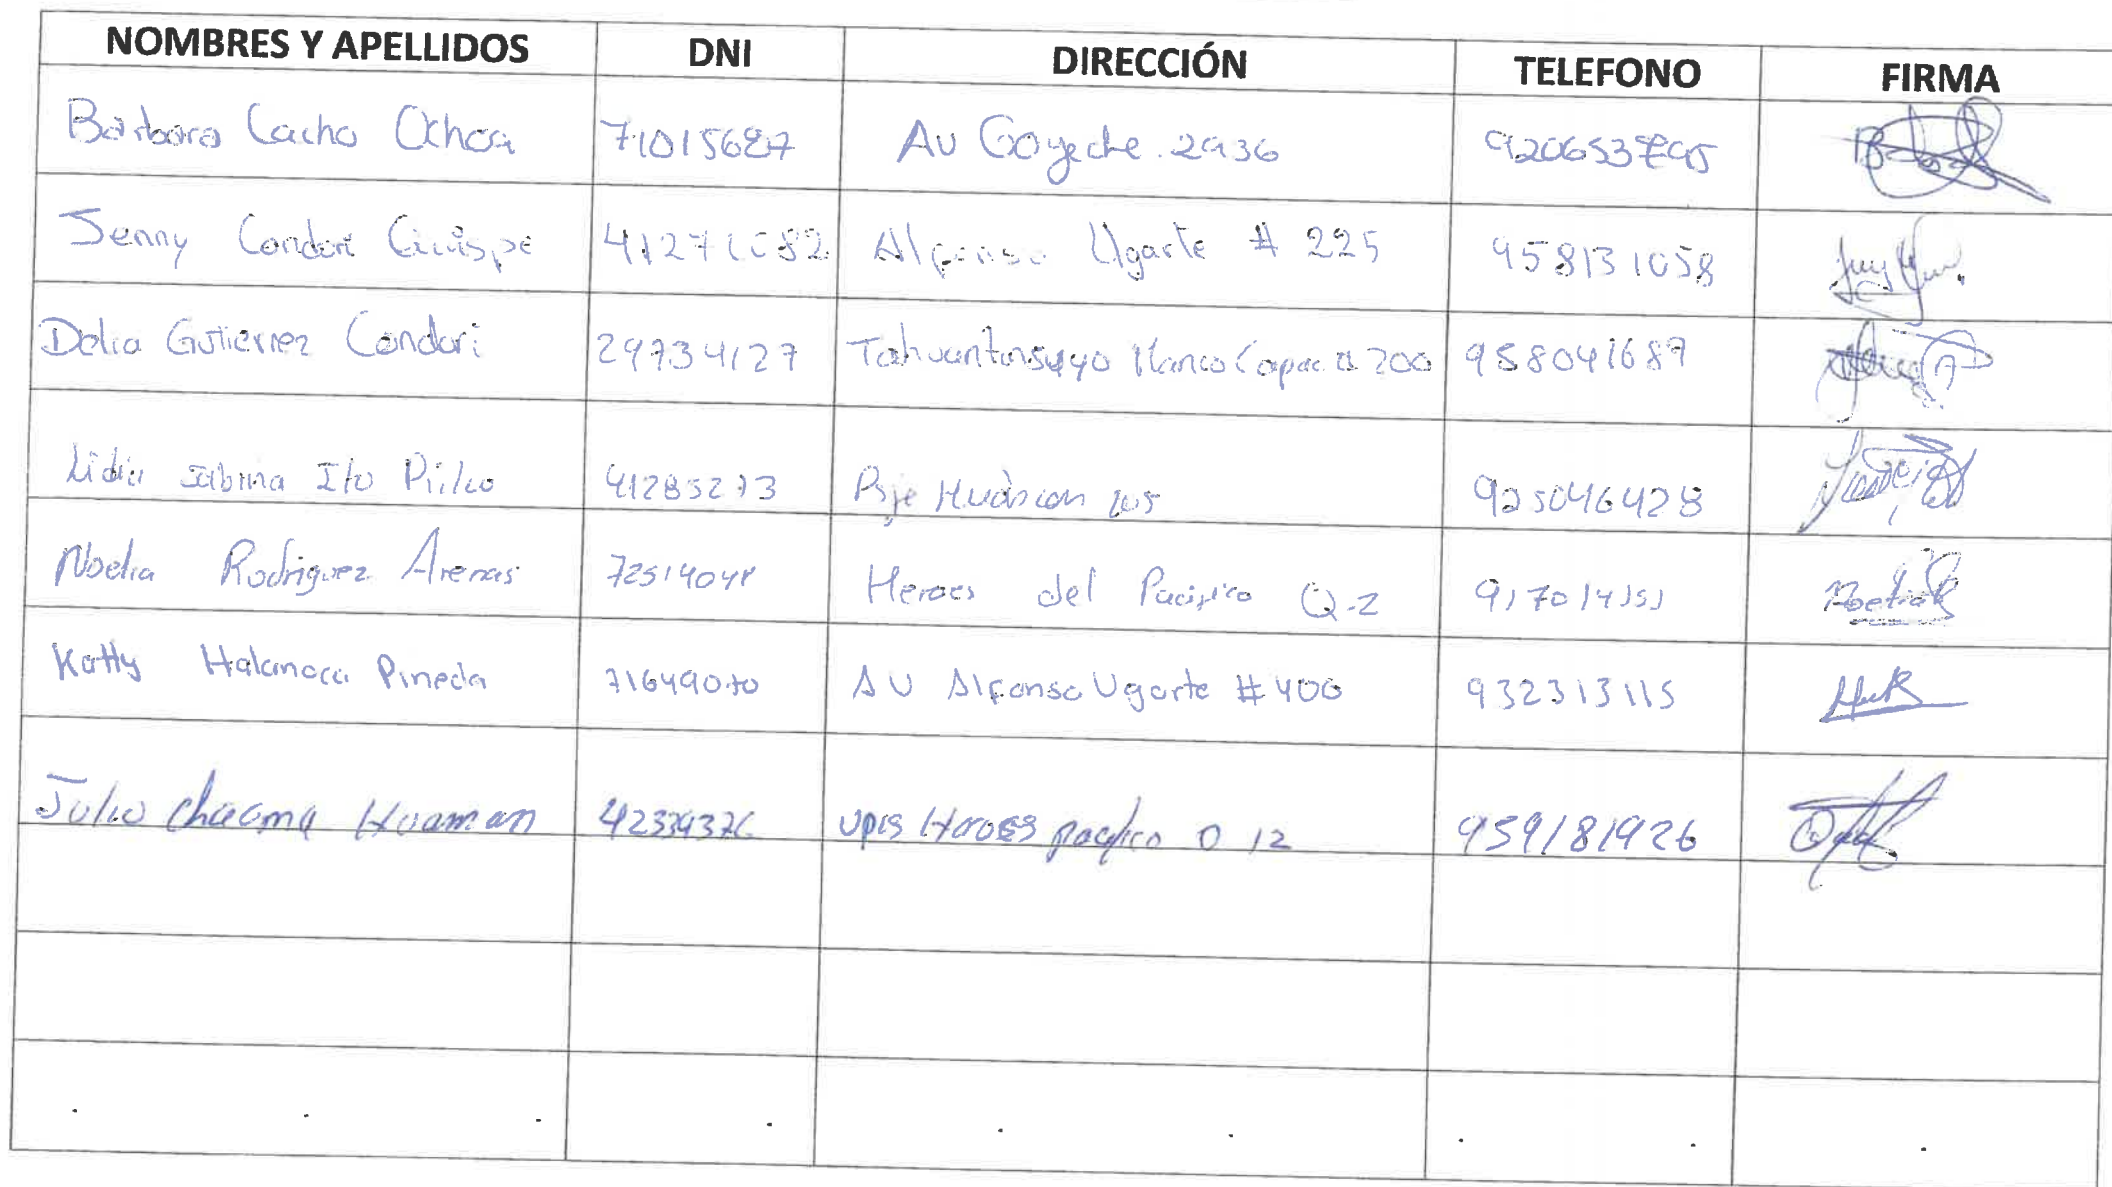 NOMBRES Y APELLIDOS DNI DIRECCIÓN TELEFONO FIRMA
Barbara Cacho Ochoa 71015627 Av Goyeche 2936
Jenny Condori Quispe Alfonso Ugarte # 225 958131058
Delia Gutierrez Condori 29734127 Tahuantinsuyo Manco Capac 200 958041689
Lidia Sabina Ito Pilco 41285273 Psje Hudson 205 925046428
Noelia Rodriguez Arenas Heroes del Pacifico Q-2
Katty Halanoca Pineda 71649070 AU Alfonso Ugarte # 400 932313115
Julio chacma Huaman upis Heroes pacifico O 12 959181926